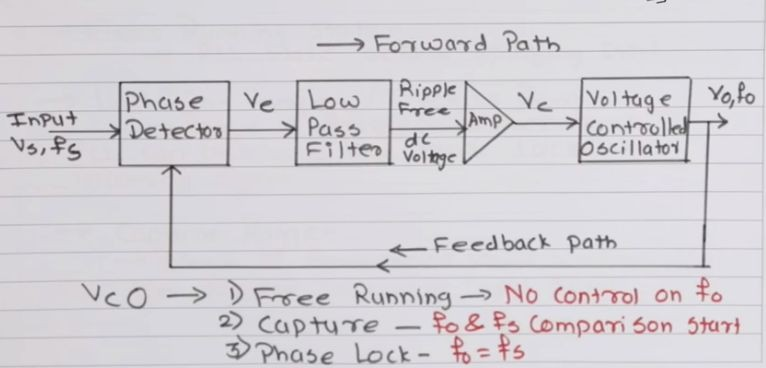 → Forward Path
Input
Vs, fs
Phase
Detector
Ve
Low
Pass
Filter
Ripple
Free
dc
Voltage
Amp
Vc
Voltage
Controlled
Oscillator
Vo, fo
← Feedback path
VCO → 1) Free Running → No Control on fo
2) Capture – fo & fs Comparison Start
3) Phase Lock - fo = fs